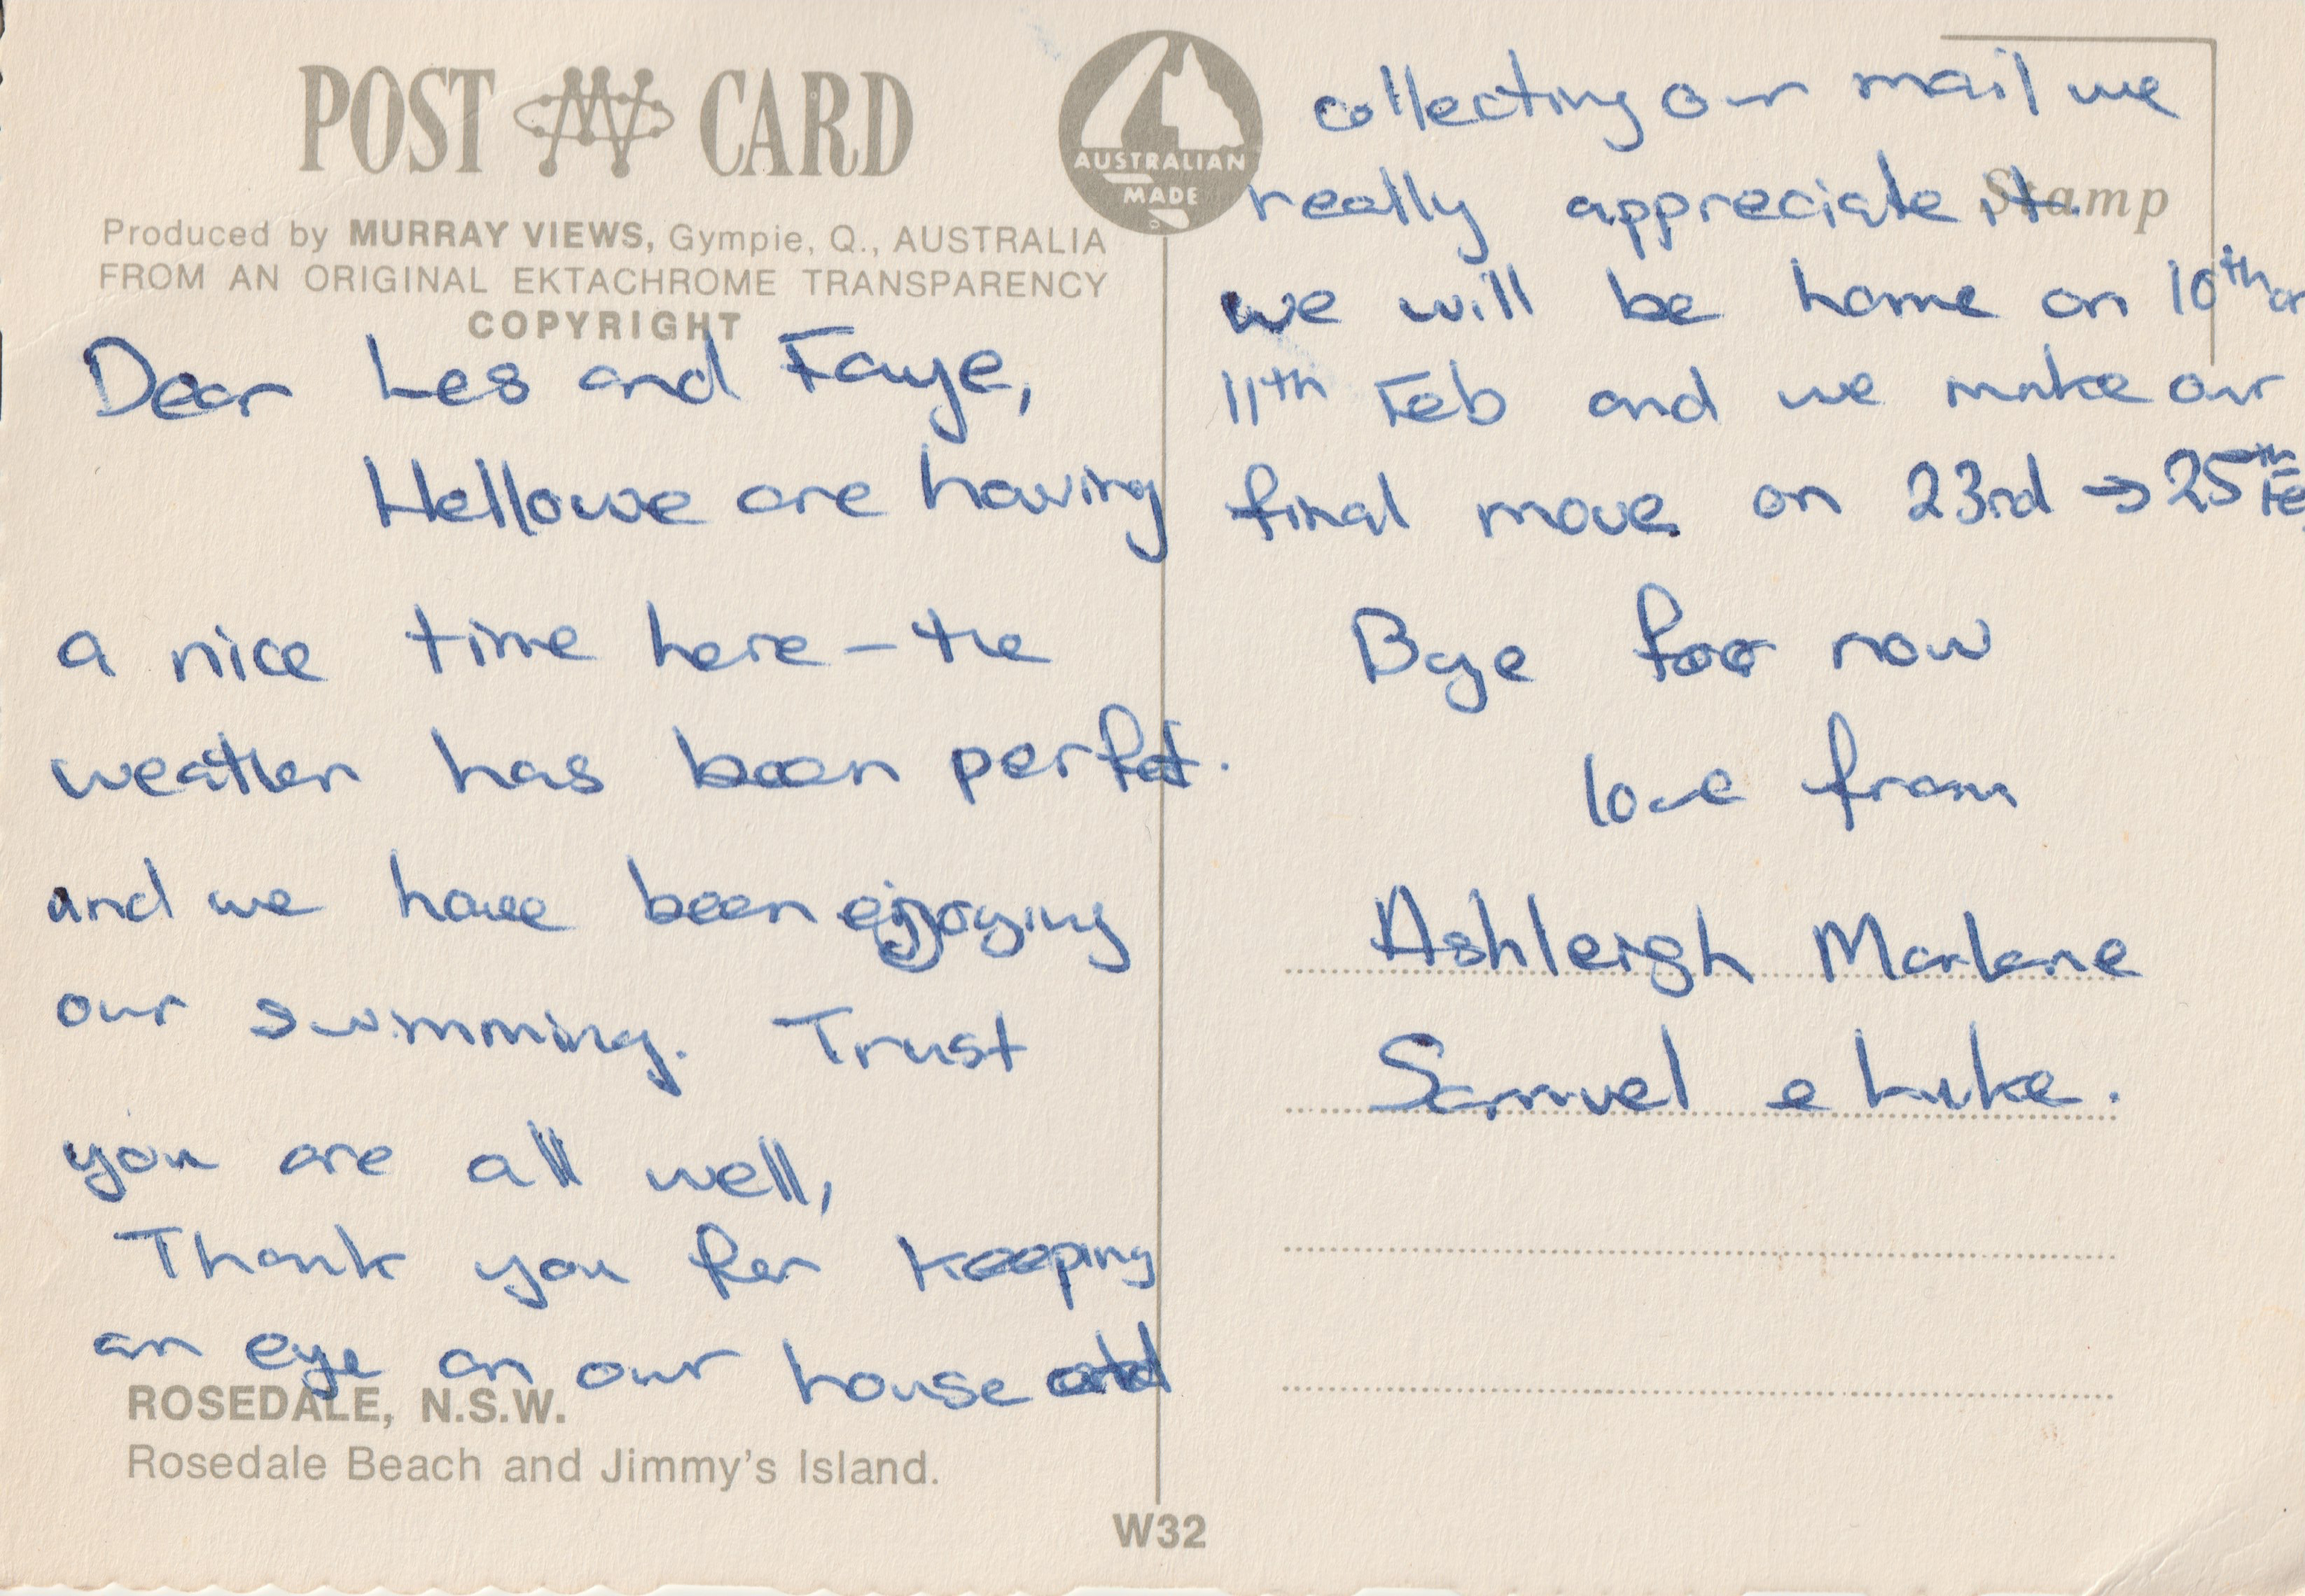 POST CARD
Produced by MURRAY VIEWS, Gympie, Q., AUSTRALIA
FROM AN ORIGINAL EKTACHROME TRANSPARENCY
COPYRIGHT
AUSTRALIAN
MADE
Dear Les and Faye,
Hello we are having
a nice time here – the
weather has been perfect.
and we have been enjoying
our swimming. Trust
you are all well,
Thank you for keeping
an eye on our house and
ROSEDALE, N.S.W.
Rosedale Beach and Jimmy's Island.
W32
Stamp
collecting our mail we
really appreciate it.
we will be home on 10th or
11th Feb and we make our
final move on 23rd → 25th Fe
Bye for now
love from
Ashleigh Marlene
Samuel e Luke.